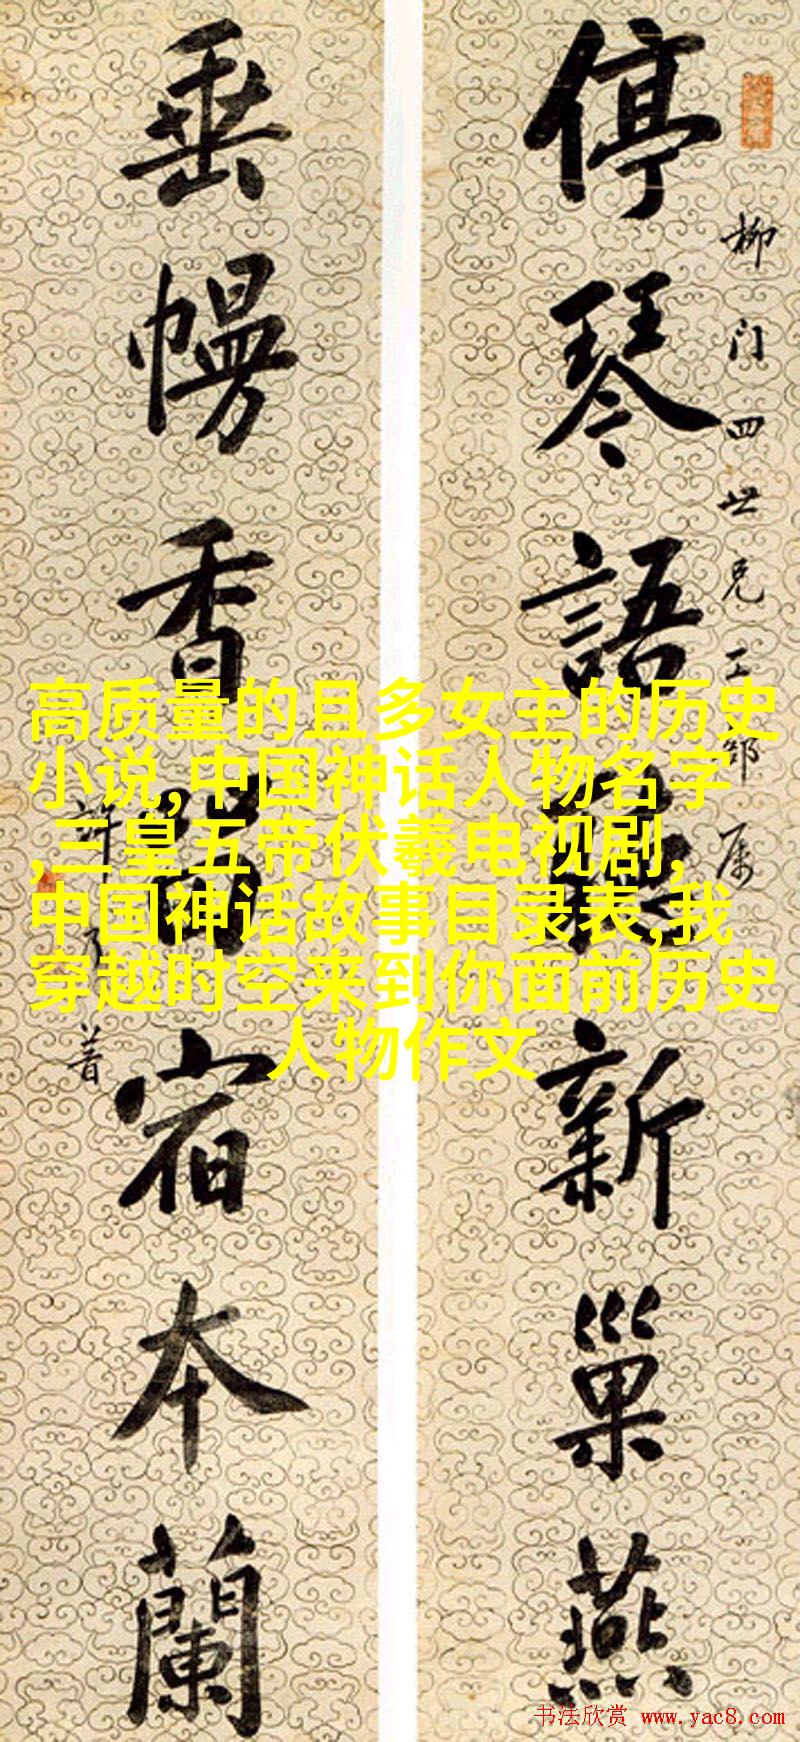 柳门四世兄工部属
停琴語新巢燕
垂幔香留宿本蘭
許乃普
高质量的且多女主的历史
小说,中国神话人物名字
,三皇五帝伏羲电视剧,
中国神话故事目录表,我
穿越时空来到你面前历史
人物作文
书法欣赏 www.yac8.com